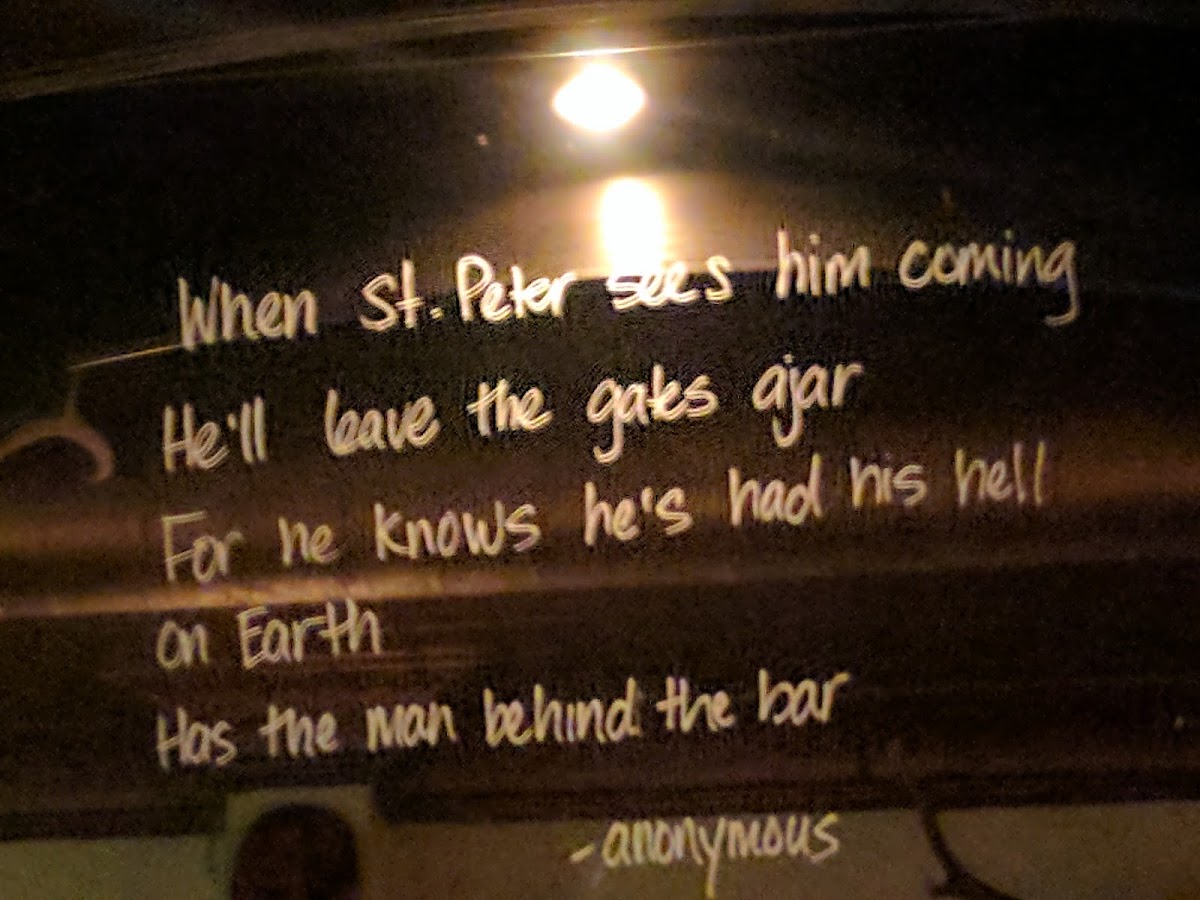 When St. Peter sees him coming
He'll leave the gates ajar
For he knows he's had his hell
on Earth
Has the man behind the bar
-anonymous